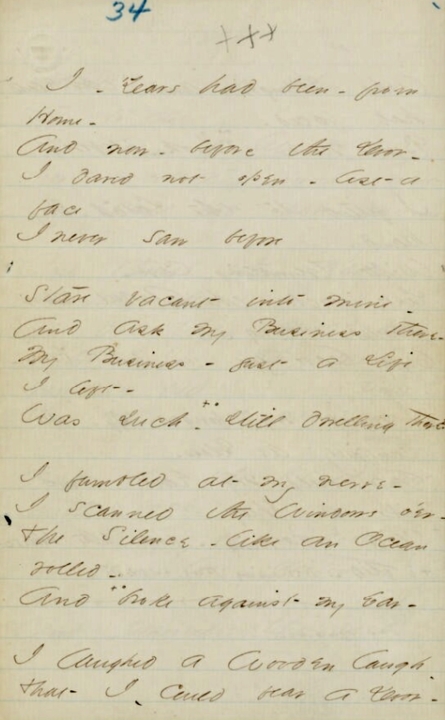 34
+++
I - Years had been - from
Home -
And now - before the Door -
I dared not open - lest a
face
I never saw before
Stare vacant into mine -
And ask my Business there -
My Business - just a Life
I left -
Was such - Still dwelling there
I fumbled at my nerve -
I scanned the Windows o'er -
The Silence - like an Ocean
rolled -
And broke against my Ear -
I laughed a Wooden laugh
That I could fear a Door -